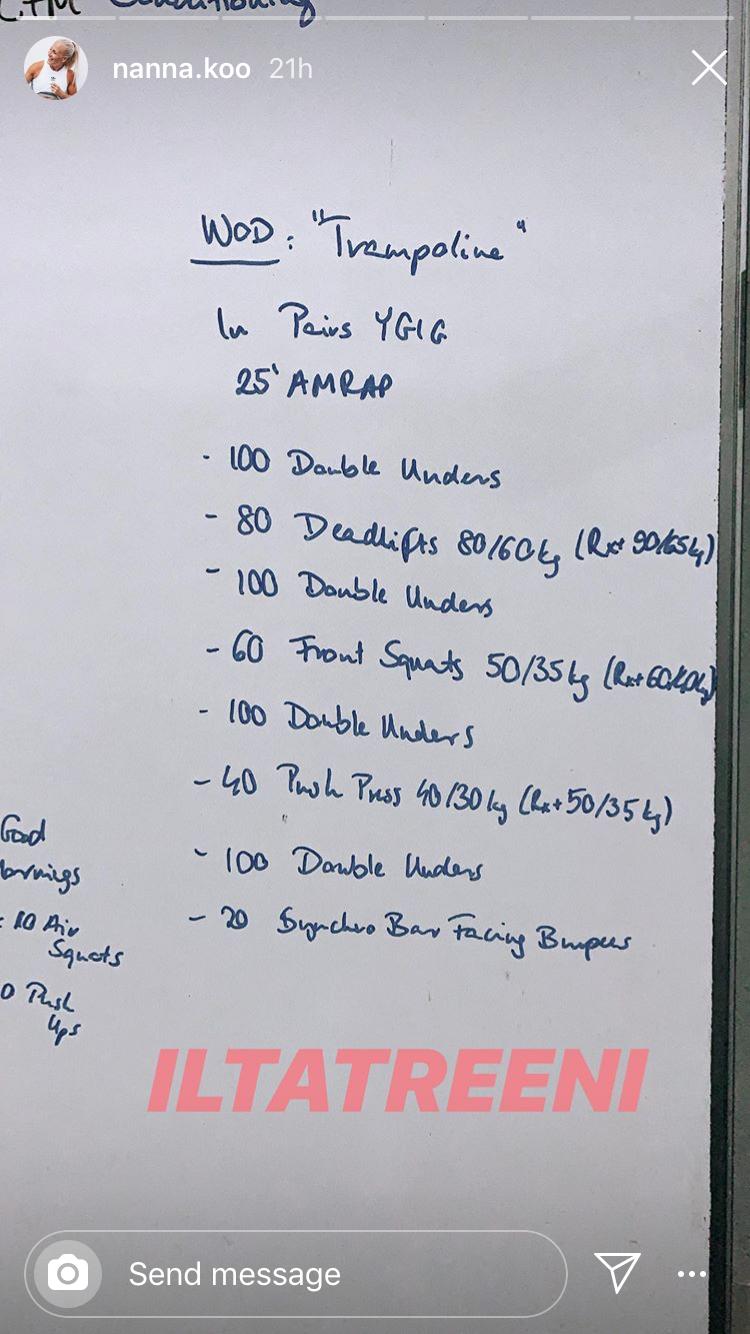 Conditioning
nanna.koo 21h
WOD: "Trampoline"
In Pairs YGIG
25' AMRAP
- 100 Double Unders
- 80 Deadlifts 80/60kg (Rx+ 90/65kg)
- 100 Double Unders
- 60 Front Squats 50/35kg (Rx+ 60/40kg)
- 100 Double Unders
- 40 Push Press 40/30kg (Rx+ 50/35kg)
- 100 Double Unders
- 20 Synchro Bar Facing Burpees
Good
Mornings
10 Air
Squats
0 Push
Ups
ILTATREENI
Send message